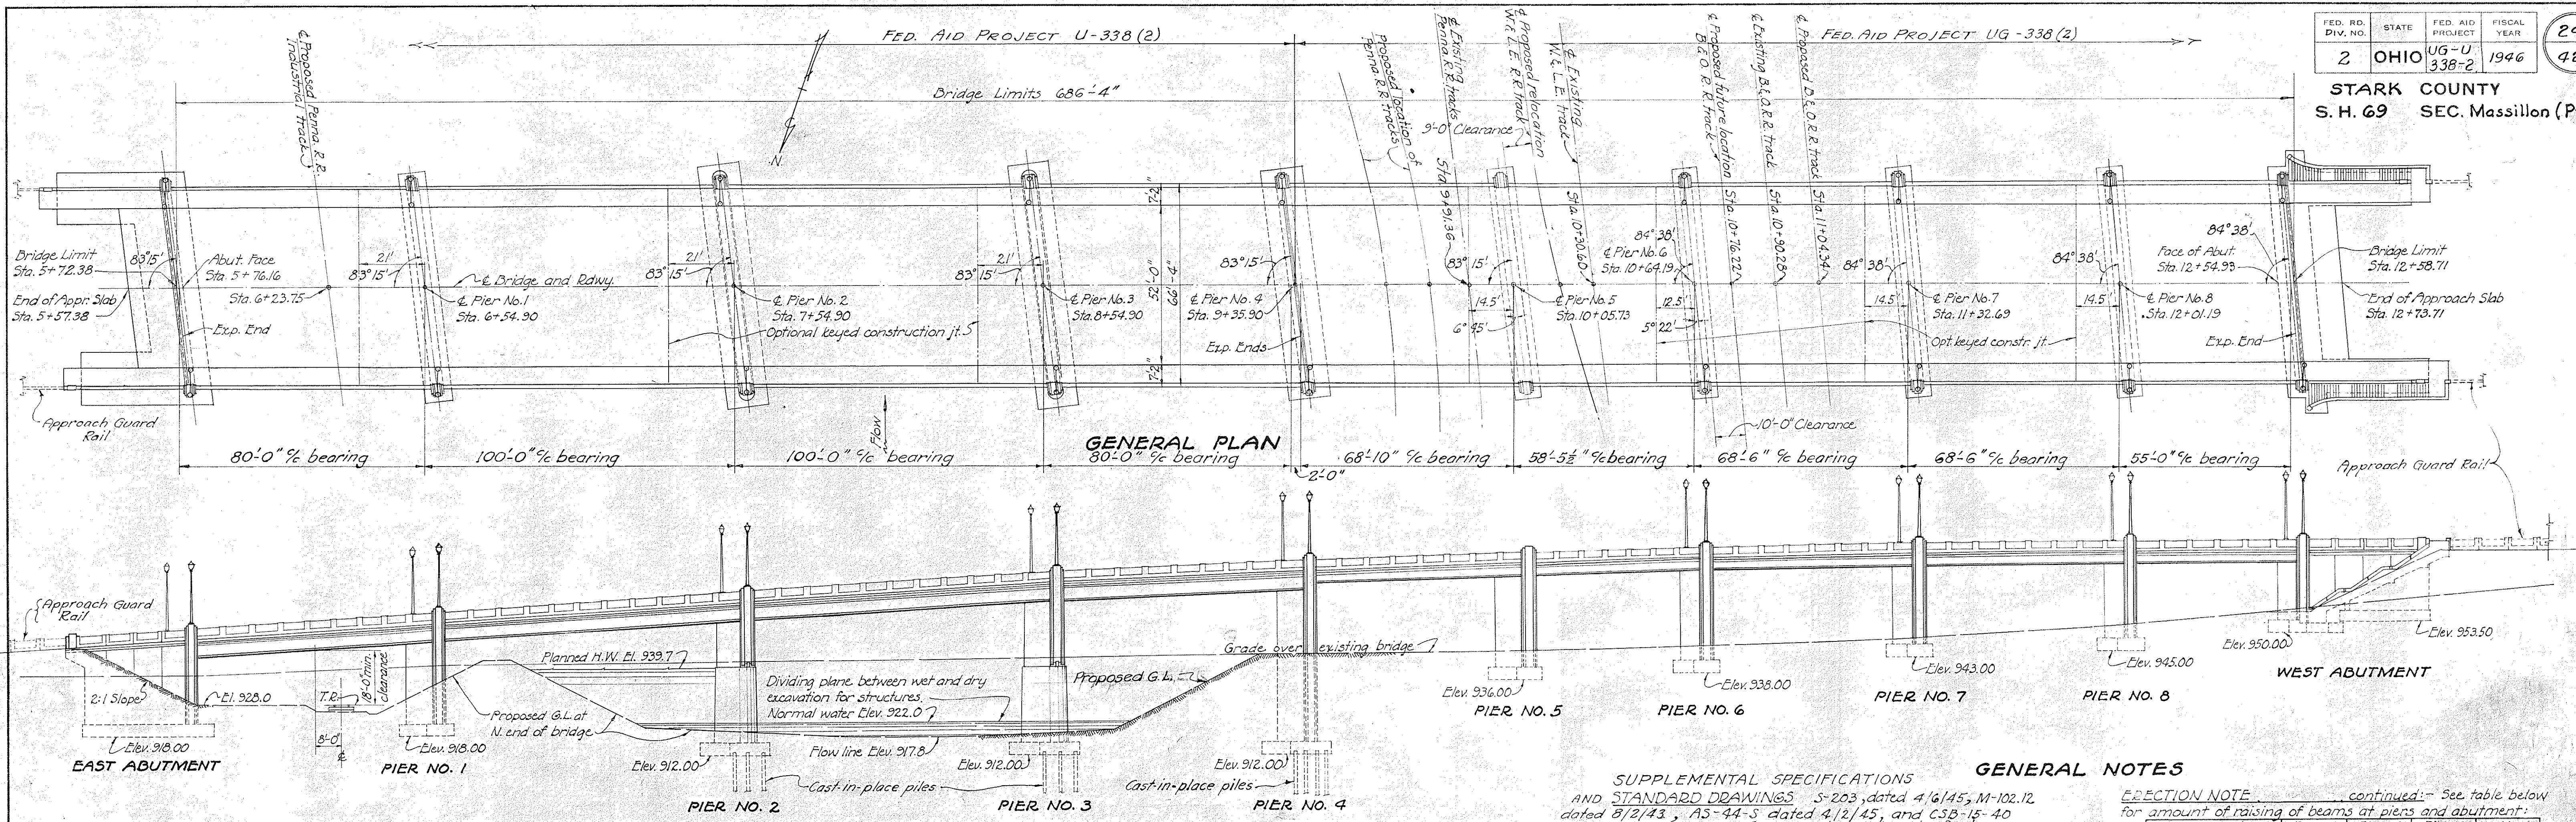 FED. RD. DIV. NO. STATE FED. AID PROJECT FISCAL YEAR
2 OHIO UG-U 338-2 1946
STARK COUNTY
S. H. 69 SEC. Massillon (P
FED. AID PROJECT U-338 (2)
FED. AID PROJECT UG-338 (2)
Bridge Limits 686'-4"
℄ Proposed Penna. R.R.
Industrial track
N.
Proposed location of
Penna. R.R. tracks
℄ Existing
Penna. R.R. tracks
Sta. 9+91.36
℄ Proposed relocation
W. & L.E. R.R. track
9'-0" Clearance
℄ Existing
W. & L.E. track
Sta. 10+30.60
℄ Proposed future location
B. & O. R.R. track
Sta. 10+76.22
℄ Existing B. & O. R.R. track Sta. 10+90.28
℄ Proposed B. & O. R.R. track Sta. 11+04.34
Bridge Limit
Sta. 5+72.38
End of Appr. Slab
Sta. 5+57.38
83°15'
Abut. Face
Sta. 5+76.16
Sta. 6+23.75
Exp. End
21'
83°15'
℄ Bridge and Rdwy.
℄ Pier No. 1
Sta. 6+54.90
21'
83°15'
℄ Pier No. 2
Sta. 7+54.90
Optional keyed construction jt.s
21'
83°15'
℄ Pier No. 3
Sta. 8+54.90
7'-2"
52'-0"
66'-4"
7'-2"
83°15'
℄ Pier No. 4
Sta. 9+35.90
Exp. Ends
83°15'
14.5'
6°45'
℄ Pier No. 5
Sta. 10+05.73
84°38'
℄ Pier No. 6
Sta. 10+64.19
12.5'
5°22'
84°38'
14.5'
℄ Pier No. 7
Sta. 11+32.69
Opt. keyed constr. jt.
84°38'
14.5'
℄ Pier No. 8
Sta. 12+01.19
84°38'
Face of Abut.
Sta. 12+54.93
Bridge Limit
Sta. 12+58.71
End of Approach Slab
Sta. 12+73.71
Exp. End
Approach Guard
Rail
Flow
10'-0" Clearance
GENERAL PLAN
80'-0" c/c bearing
100'-0" c/c bearing
100'-0" c/c bearing
80'-0" c/c bearing
2'-0"
68'-10" c/c bearing
58'-5½" c/c bearing
68'-6" c/c bearing
68'-6" c/c bearing
55'-0" c/c bearing
Approach Guard Rail
Approach Guard
Rail
2:1 Slope
El. 928.0
T.R.
18'-0" min.
clearance
8'-0"
℄
Planned H.W. El. 939.7
Dividing plane between wet and dry
excavation for structures.
Normal water Elev. 922.0
Proposed G.L. at
N. end of bridge
Flow line Elev. 917.8
Grade over existing bridge
Proposed G.L.
Elev. 918.00
EAST ABUTMENT
Elev. 918.00
PIER NO. 1
Elev. 912.00
PIER NO. 2
Cast-in-place piles
Elev. 912.00
PIER NO. 3
Elev. 912.00
Cast-in-place piles
PIER NO. 4
Elev. 936.00
PIER NO. 5
Elev. 938.00
PIER NO. 6
Elev. 943.00
PIER NO. 7
Elev. 945.00
PIER NO. 8
Elev. 950.00
Elev. 953.50
WEST ABUTMENT
GENERAL NOTES
SUPPLEMENTAL SPECIFICATIONS
AND STANDARD DRAWINGS S-203, dated 4/6/45, M-102.12
dated 8/2/43, AS-44-S dated 4/2/45, and CSB-15-40
ERECTION NOTE continued:- See table below
for amount of raising of beams at piers and abutment: